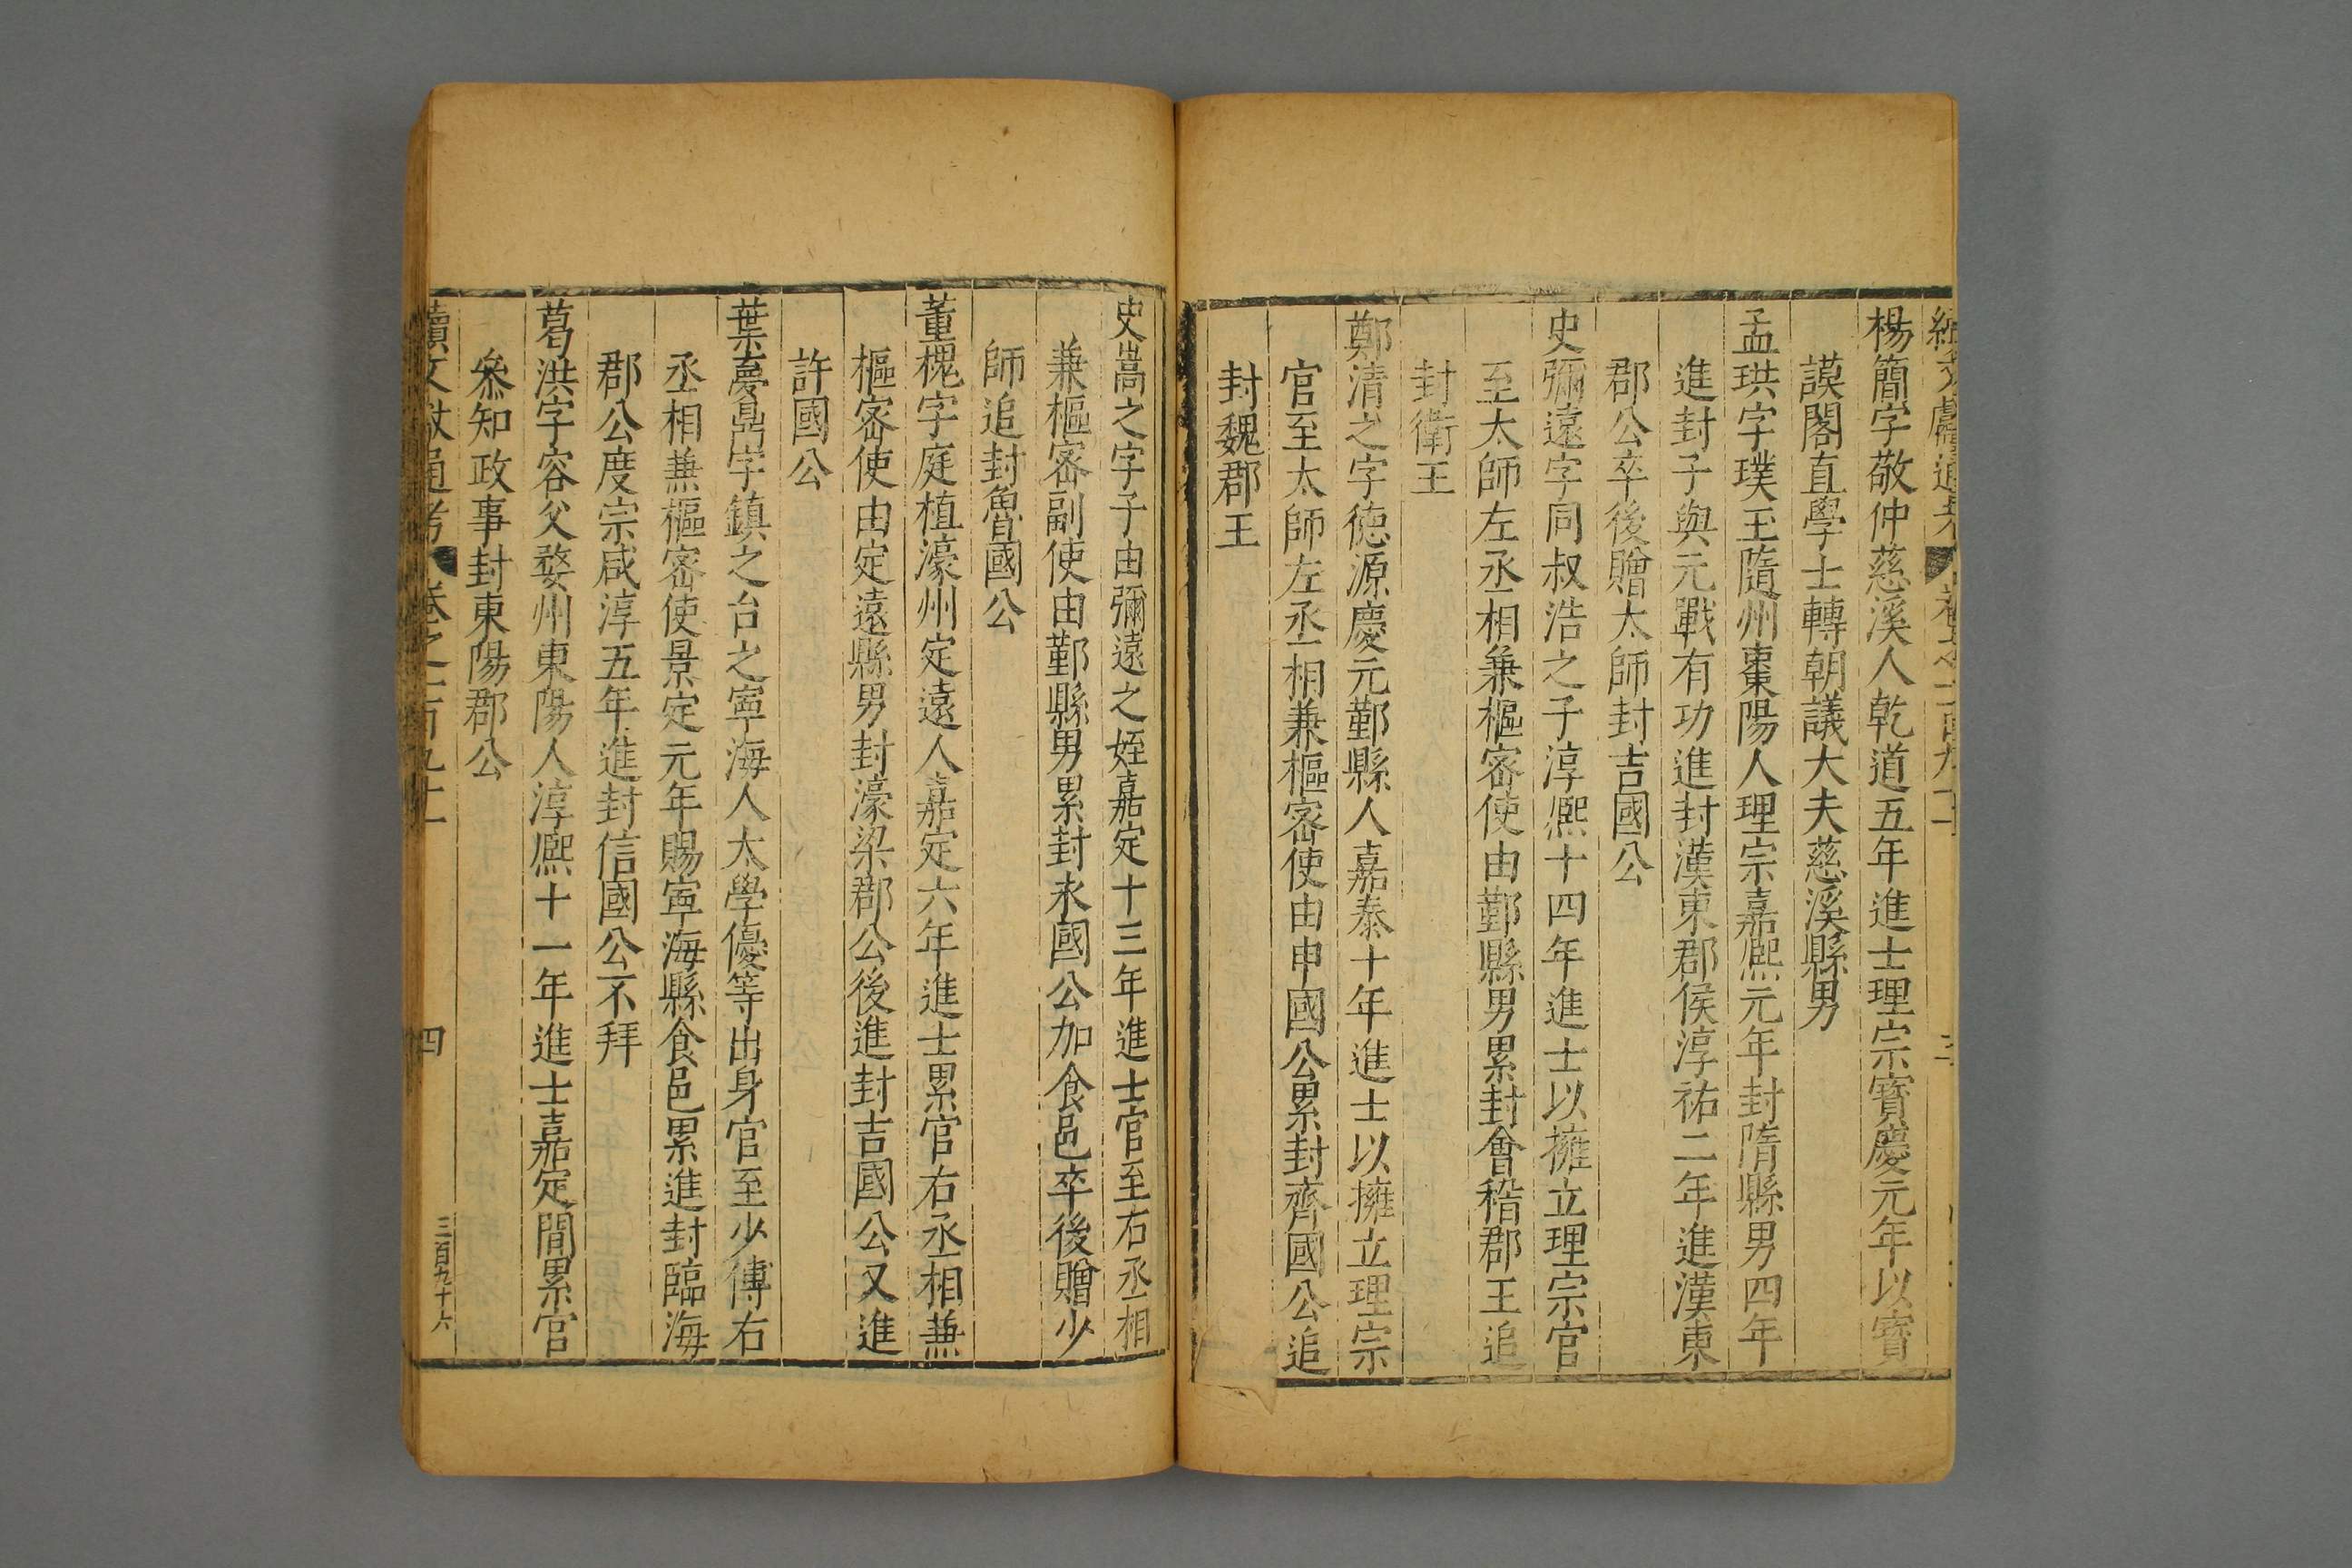 楊簡字敬仲慈溪人乾道五年進士理宗寳慶元年以寳
謨閣直學士轉朝議大夫慈溪縣男
孟珙字璞玉隨州棗陽人理宗嘉熈元年封隋縣男四年
進封子與元戰有功進封漢東郡侯淳祐二年進漢東
郡公卒後贈太師封吉國公
史彌遠字同叔浩之子淳熈十四年進士以擁立理宗官
至太師左丞相兼樞宻使由鄞縣男累封會稽郡王追
封衛王
鄭清之字徳源慶元鄞縣人嘉泰十年進士以擁立理宗
官至太師左丞相兼樞宻使由申國公累封齊國公追
封魏郡王
史嵩之字子由彌遠之姪嘉定十三年進士官至右丞相
兼樞宻副使由鄞縣男累封永國公加食邑卒後贈少
師追封魯國公
董槐字庭植濠州定遠人嘉定六年進士累官右丞相兼
樞宻使由定遠縣男封濠梁郡公後進封吉國公又進
許國公
葉夢鼎字鎮之台之寧海人太學優等出身官至少傅右
丞相兼樞宻使景定元年賜寧海縣食邑累進封臨海
郡公度宗咸淳五年進封信國公不拜
葛洪字容父婺州東陽人淳熈十一年進士嘉定間累官
叅知政事封東陽郡公
續文獻通考 卷之一百九十二 四 三百九十六